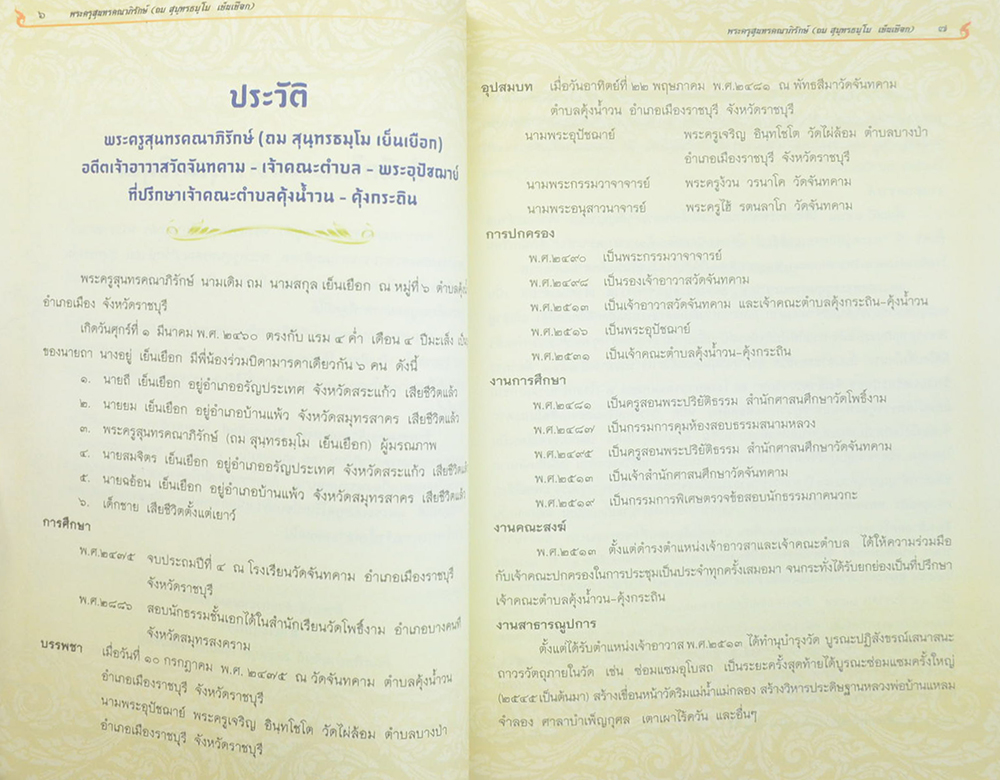 ๖ พระครูสุนทรคณาภิรักษ์ (ถม สุนฺทรธมฺโม เย็นเยือก)
ประวัติ
พระครูสุนทรคณาภิรักษ์ (ถม สุนฺทรธมฺโม เย็นเยือก)
อดีตเจ้าอาวาสวัดจันทคาม - เจ้าคณะตำบล - พระอุปัชฌาย์
ที่ปรึกษาเจ้าคณะตำบลคุ้งน้ำวน - คุ้งกระถิน
พระครูสุนทรคณาภิรักษ์ นามเดิม ถม นามสกุล เย็นเยือก ณ หมู่ที่ ๖
อำเภอเมือง จังหวัดราชบุรี
เกิดวันศุกร์ที่ ๑ มีนาคม พ.ศ. ๒๔๖๐ ตรงกับ แรม ๔ ค่ำ เดือน ๔ ปีมะเส็ง
ของนายถา นางอยู่ เย็นเยือก มีพี่น้องร่วมบิดามารดาเดียวกัน ๖ คน ดังนี้
๑. นายถี เย็นเยือก อยู่อำเภออรัญประเทศ จังหวัดสระแก้ว เสียชีวิตแล้ว
๒. นายยม เย็นเยือก อยู่อำเภอบ้านแพ้ว จังหวัดสมุทรสาคร เสียชีวิตแล้ว
๓. พระครูสุนทรคณาภิรักษ์ (ถม สุนฺทรธมฺโม เย็นเยือก) ผู้มรณภาพ
๔. นายสมจิตร เย็นเยือก อยู่อำเภออรัญประเทศ จังหวัดสระแก้ว เสียชีวิตแล้ว
๕. นายฉอ้อน เย็นเยือก อยู่อำเภอบ้านแพ้ว จังหวัดสมุทรสาคร เสียชีวิตแล้ว
๖. เด็กชาย เสียชีวิตตั้งแต่เยาว์
การศึกษา
พ.ศ.๒๔๗๕ จบประถมปีที่ ๔ ณ โรงเรียนวัดจันทคาม อำเภอเมืองราชบุรี
จังหวัดราชบุรี
พ.ศ.๒๘๘๖ สอบนักธรรมชั้นเอกได้ในสำนักเรียนวัดโพธิ์งาม อำเภอบางคนที
จังหวัดสมุทรสงคราม
บรรพชา เมื่อวันที่ ๑๐ กรกฎาคม พ.ศ. ๒๔๗๕ ณ วัดจันทคาม ตำบลคุ้งน้ำวน
อำเภอเมืองราชบุรี จังหวัดราชบุรี
นามพระอุปัชฌาย์ พระครูเจริญ อินฺทโชโต วัดไผ่ล้อม ตำบลบางป่า
อำเภอเมืองราชบุรี จังหวัดราชบุรี
พระครูสุนทรคณาภิรักษ์ (ถม สุนฺทรธมฺโม เย็นเยือก) ๗
อุปสมบท เมื่อวันอาทิตย์ที่ ๒๒ พฤษภาคม พ.ศ.๒๔๘๑ ณ พัทธสีมาวัดจันทคาม
ตำบลคุ้งน้ำวน อำเภอเมืองราชบุรี จังหวัดราชบุรี
นามพระอุปัชฌาย์ พระครูเจริญ อินฺทโชโต วัดไผ่ล้อม ตำบลบางป่า
อำเภอเมืองราชบุรี จังหวัดราชบุรี
นามพระกรรมวาจาจารย์ พระครูง้วน วรนาโค วัดจันทคาม
นามพระอนุสาวนาจารย์ พระครูไฮ้ รตนลาโภ วัดจันทคาม
การปกครอง
พ.ศ.๒๔๙๐ เป็นพระกรรมวาจาจารย์
พ.ศ.๒๔๙๘ เป็นรองเจ้าอาวาสวัดจันทคาม
พ.ศ.๒๕๑๓ เป็นเจ้าอาวาสวัดจันทคาม และเจ้าคณะตำบลคุ้งกระถิน-คุ้งน้ำวน
พ.ศ.๒๕๑๖ เป็นพระอุปัชฌาย์
พ.ศ.๒๕๓๑ เป็นเจ้าคณะตำบลคุ้งน้ำวน-คุ้งกระถิน
งานการศึกษา
พ.ศ.๒๔๘๑ เป็นครูสอนพระปริยัติธรรม สำนักศาสนศึกษาวัดโพธิ์งาม
พ.ศ.๒๔๘๗ เป็นกรรมการคุมห้องสอบธรรมสนามหลวง
พ.ศ.๒๔๙๕ เป็นครูสอนพระปริยัติธรรม สำนักศาสนศึกษาวัดจันทคาม
พ.ศ.๒๕๑๓ เป็นเจ้าสำนักศาสนศึกษาวัดจันทคาม
พ.ศ.๒๕๑๙ เป็นกรรมการพิเศษตรวจข้อสอบนักธรรมภาคนวกะ
งานคณะสงฆ์
พ.ศ.๒๕๑๓ ตั้งแต่ดำรงตำแหน่งเจ้าอาวสาและเจ้าคณะตำบล ได้ให้ความร่วมมือ
กับเจ้าคณะปกครองในการประชุมเป็นประจำทุกครั้งเสมอมา จนกระทั่งได้รับยกย่องเป็นที่ปรึกษา
เจ้าคณะตำบลคุ้งน้ำวน-คุ้งกระถิน
งานสาธารณูปการ
ตั้งแต่ได้รับตำแหน่งเจ้าอาวาส พ.ศ.๒๕๑๓ ได้ทำนุบำรุงวัด บูรณะปฏิสังขรณ์เสนาสนะ
ถาวรวัตถุภายในวัด เช่น ซ่อมแซมอุโบสถ เป็นระยะครั้งสุดท้ายได้บูรณะซ่อมแซมครั้งใหญ่
(๒๕๔๕ เป็นต้นมา) สร้างเขื่อนหน้าวัดริมแม่น้ำแม่กลอง สร้างวิหารประดิษฐานหลวงพ่อบ้านแหลม
จำลอง ศาลาบำเพ็ญกุศล เตาเผาไร้ควัน และอื่นๆ